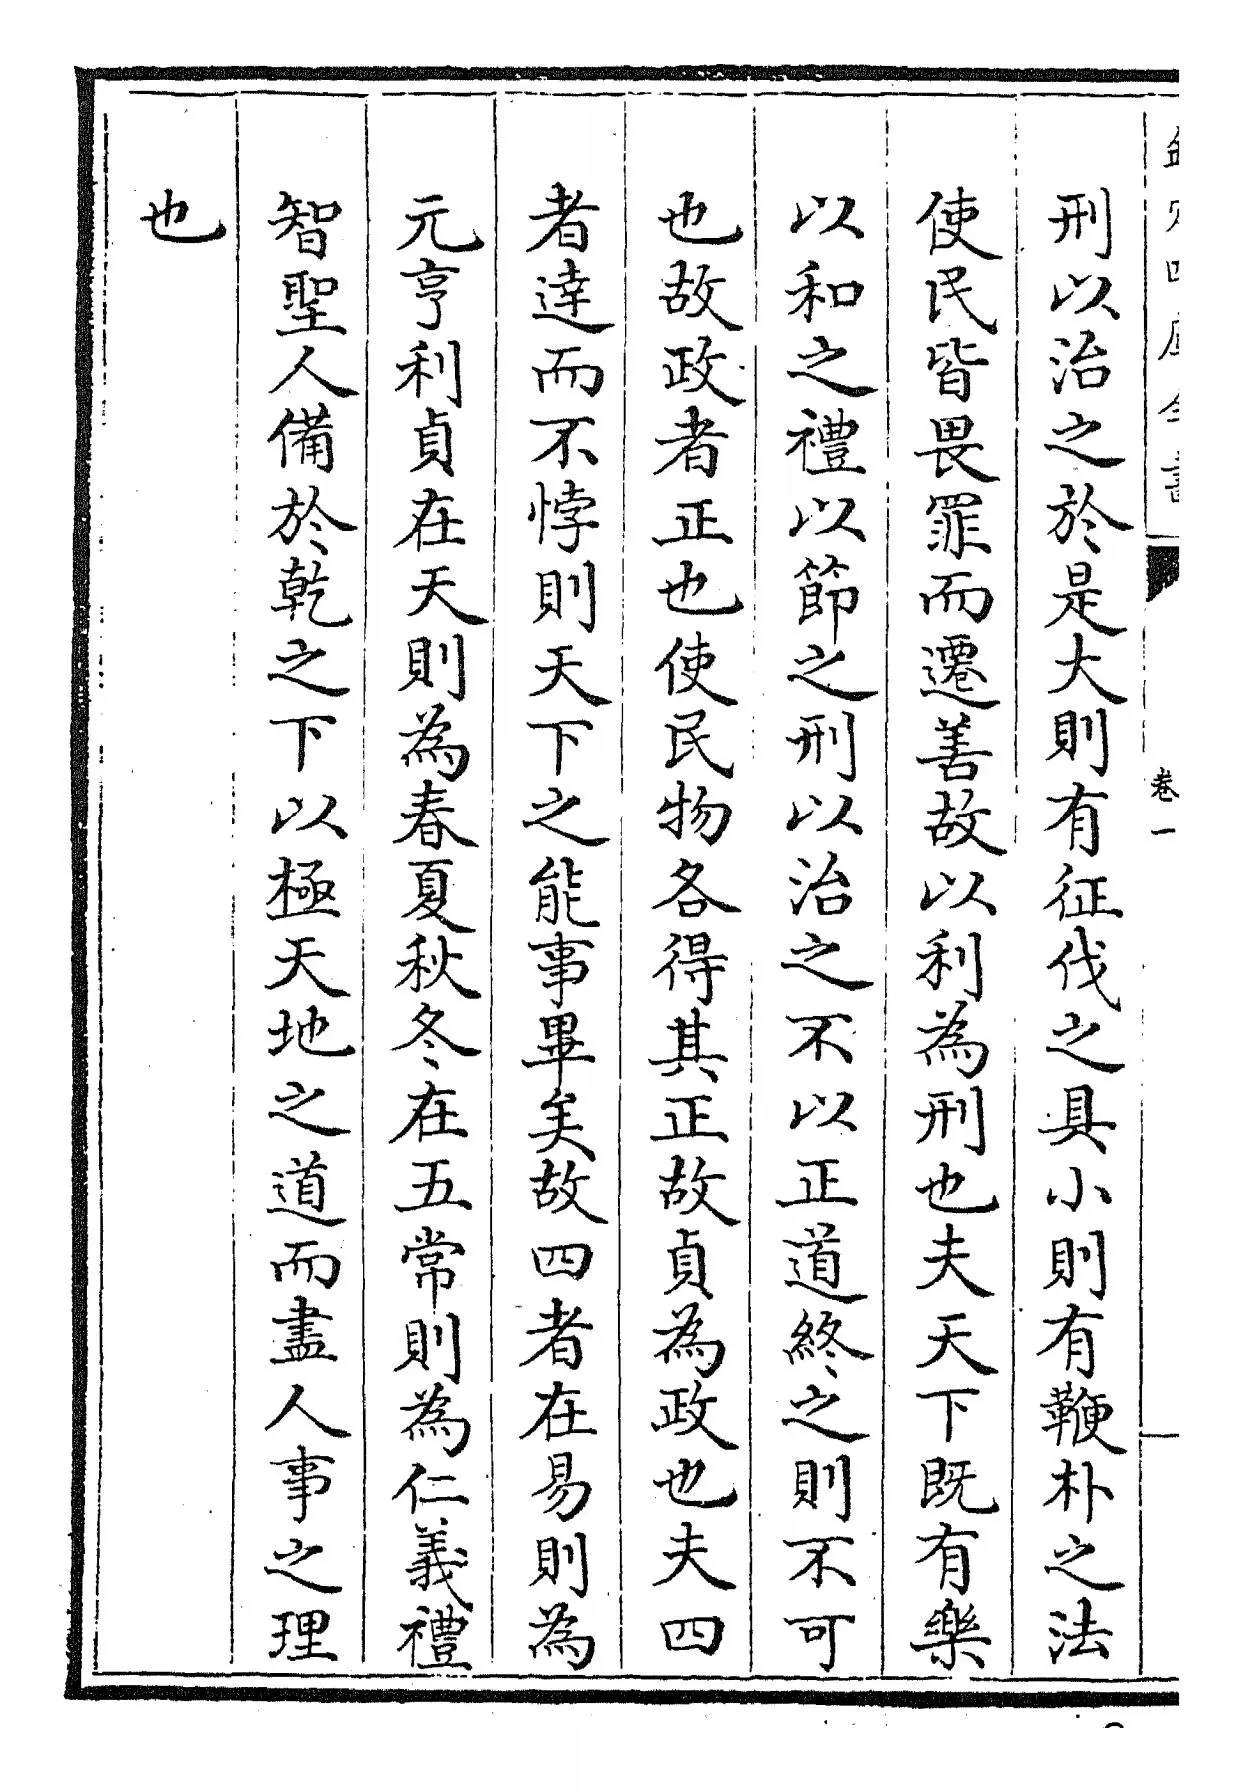 欽定四庫全書
卷一
刑以治之於是大則有征伐之具小則有鞭朴之法
使民皆畏罪而遷善故以利為刑也夫天下既有樂
以和之禮以節之刑以治之不以正道終之則不可
也故政者正也使民物各得其正故貞為政也夫四
者達而不悖則天下之能事畢矣故四者在易則為
元亨利貞在天則為春夏秋冬在五常則為仁義禮
智聖人備於乾之下以極天地之道而盡人事之理
也